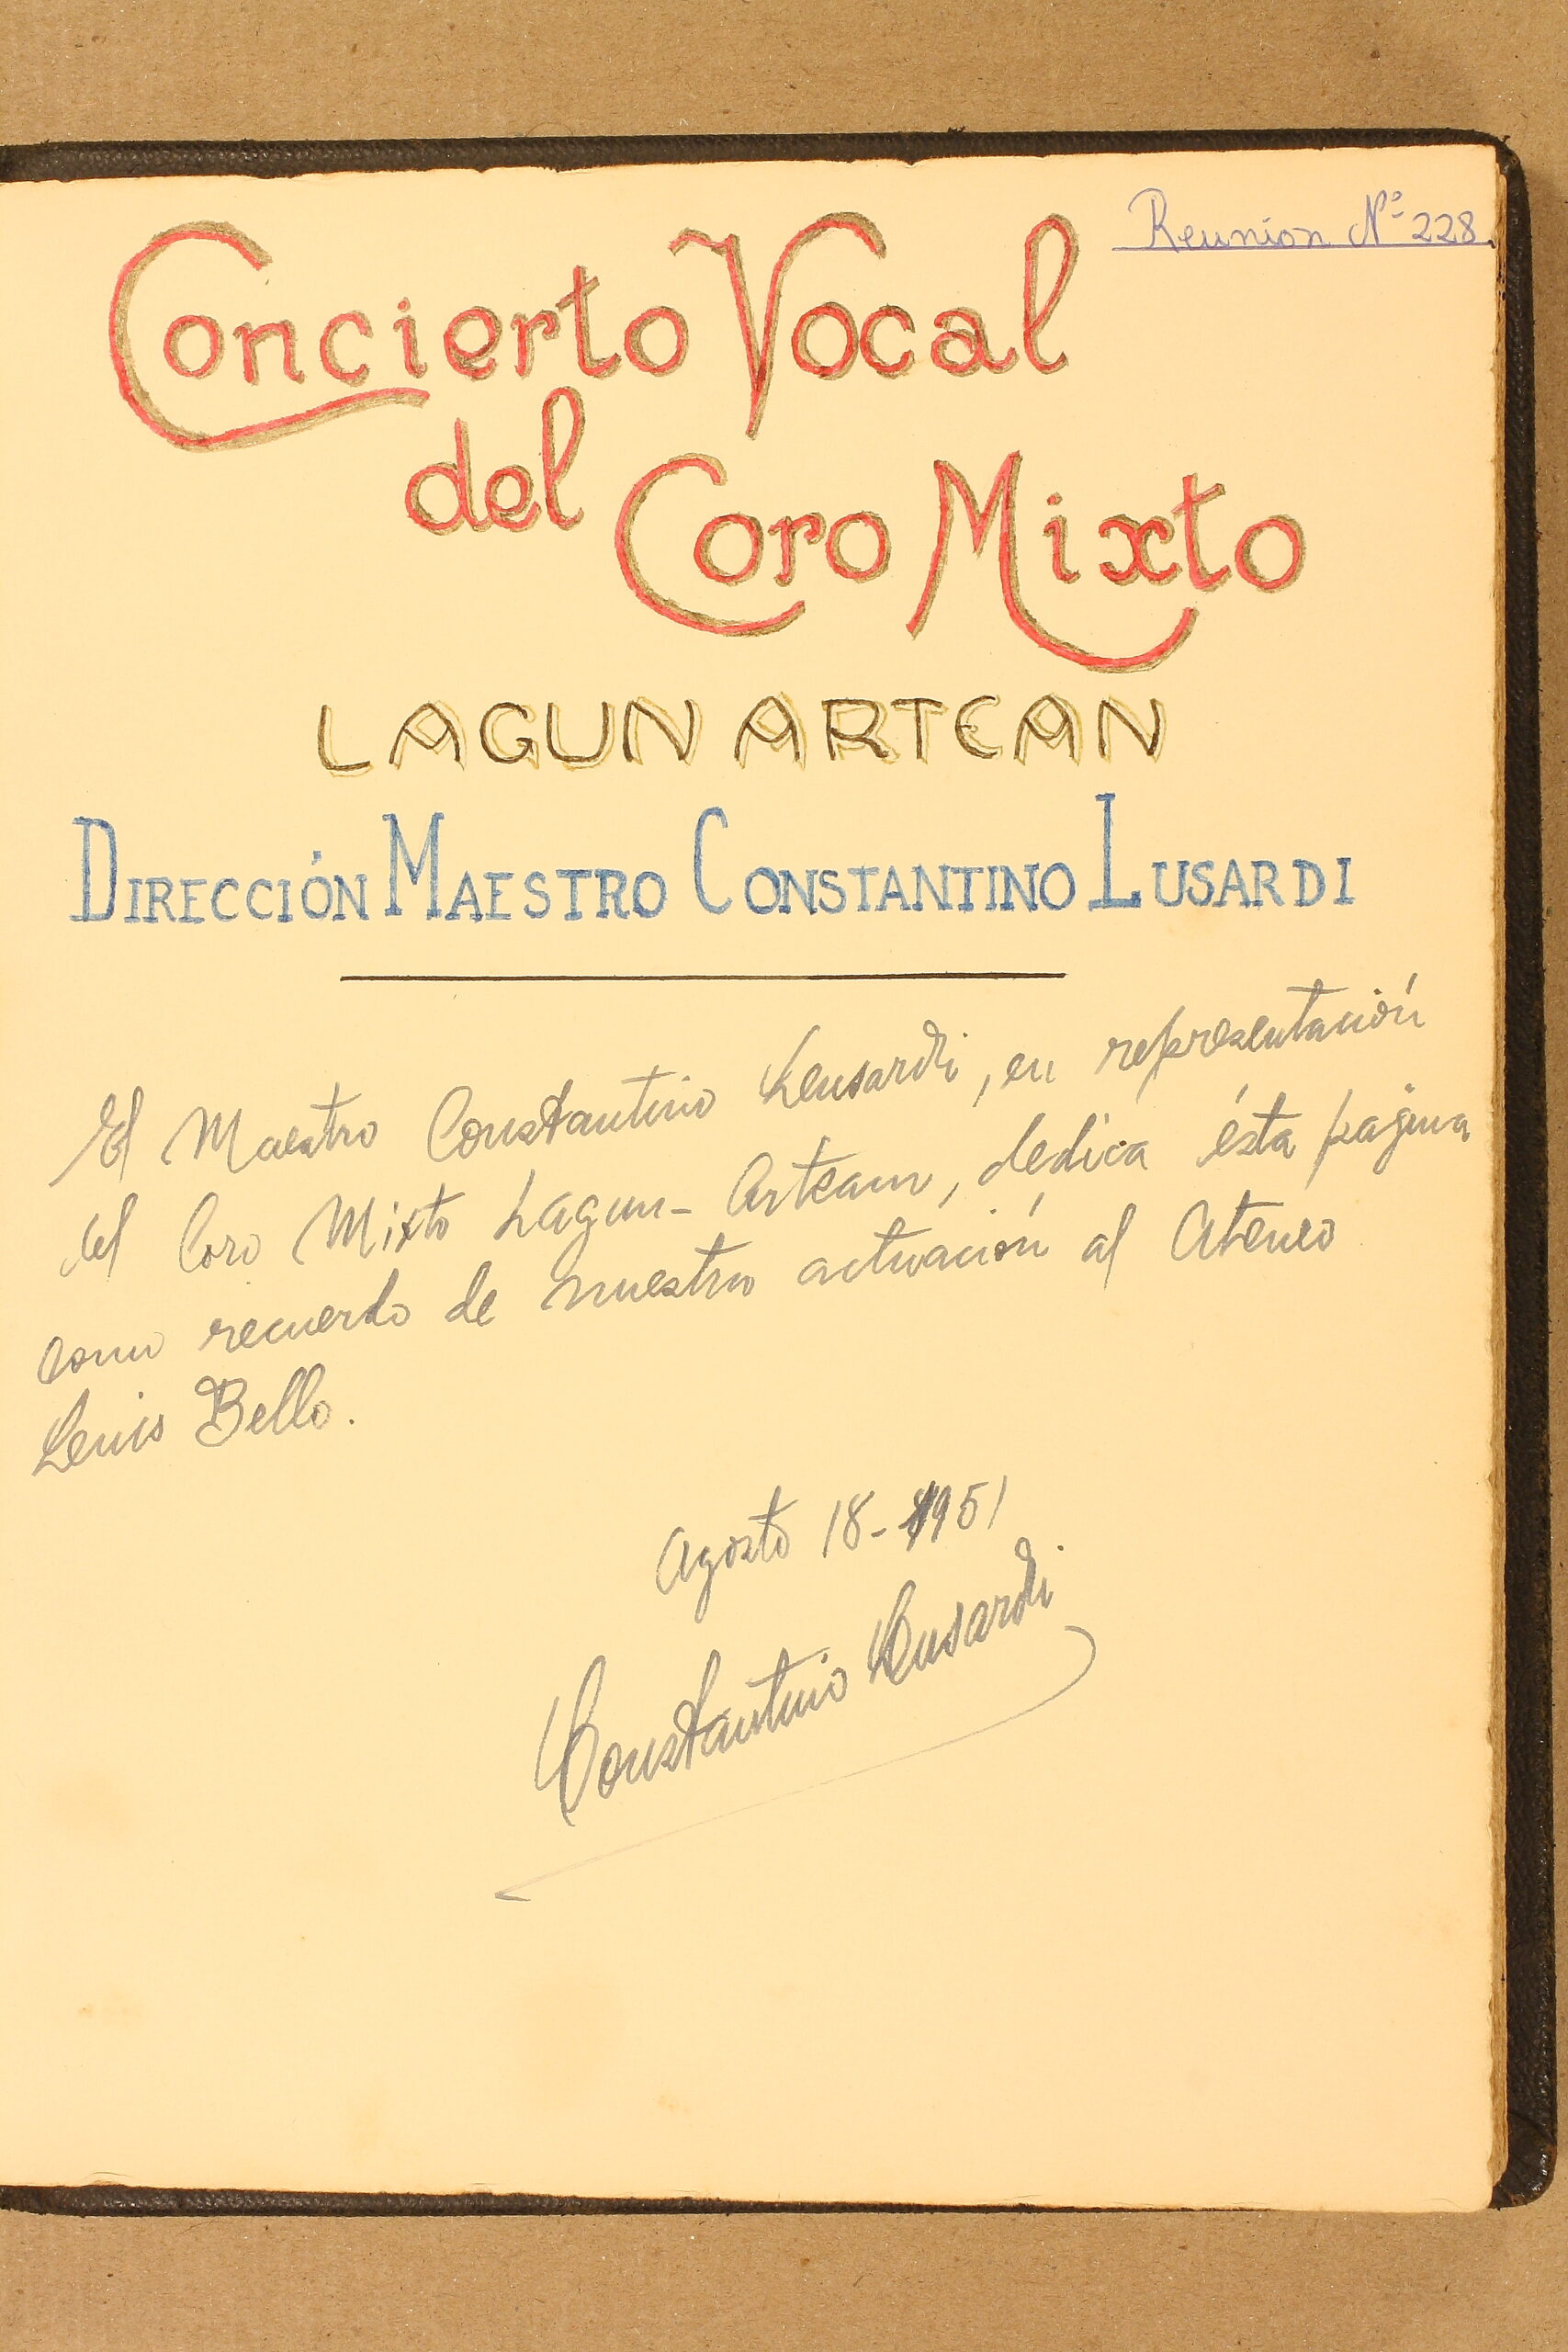 Reunion Nº 228.
Concierto Vocal
del Coro Mixto
LAGUN ARTEAN
DIRECCIÓN MAESTRO CONSTANTINO LUSARDI
El Maestro Constantino Lusardi, en representación
del Coro Mixto Lagun-Artean, dedica ésta pagina
como recuerdo de nuestra actuación al Ateneo
Luis Bello.
Agosto 18-1951
Constantino Lusardi